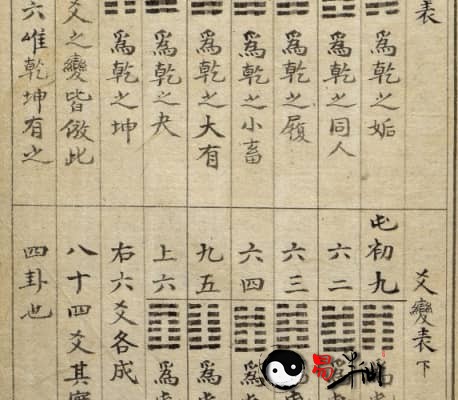 表
爲乾之姤
爲乾之同人
爲乾之履
爲乾之小畜
爲乾之大有
爲乾之夬
爲乾之坤
爻之變皆倣此
六惟乾坤有之
爻變表下
屯初九
六二
六三
六四 爲
九五 爲
上六 爲
右六爻各成
八十四爻其實
四卦也